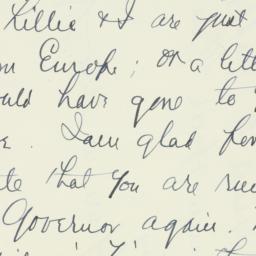 Killie & I are just
Europe; or a lette
ould have gone to
. I am glad for
te that you are run
Governor again.